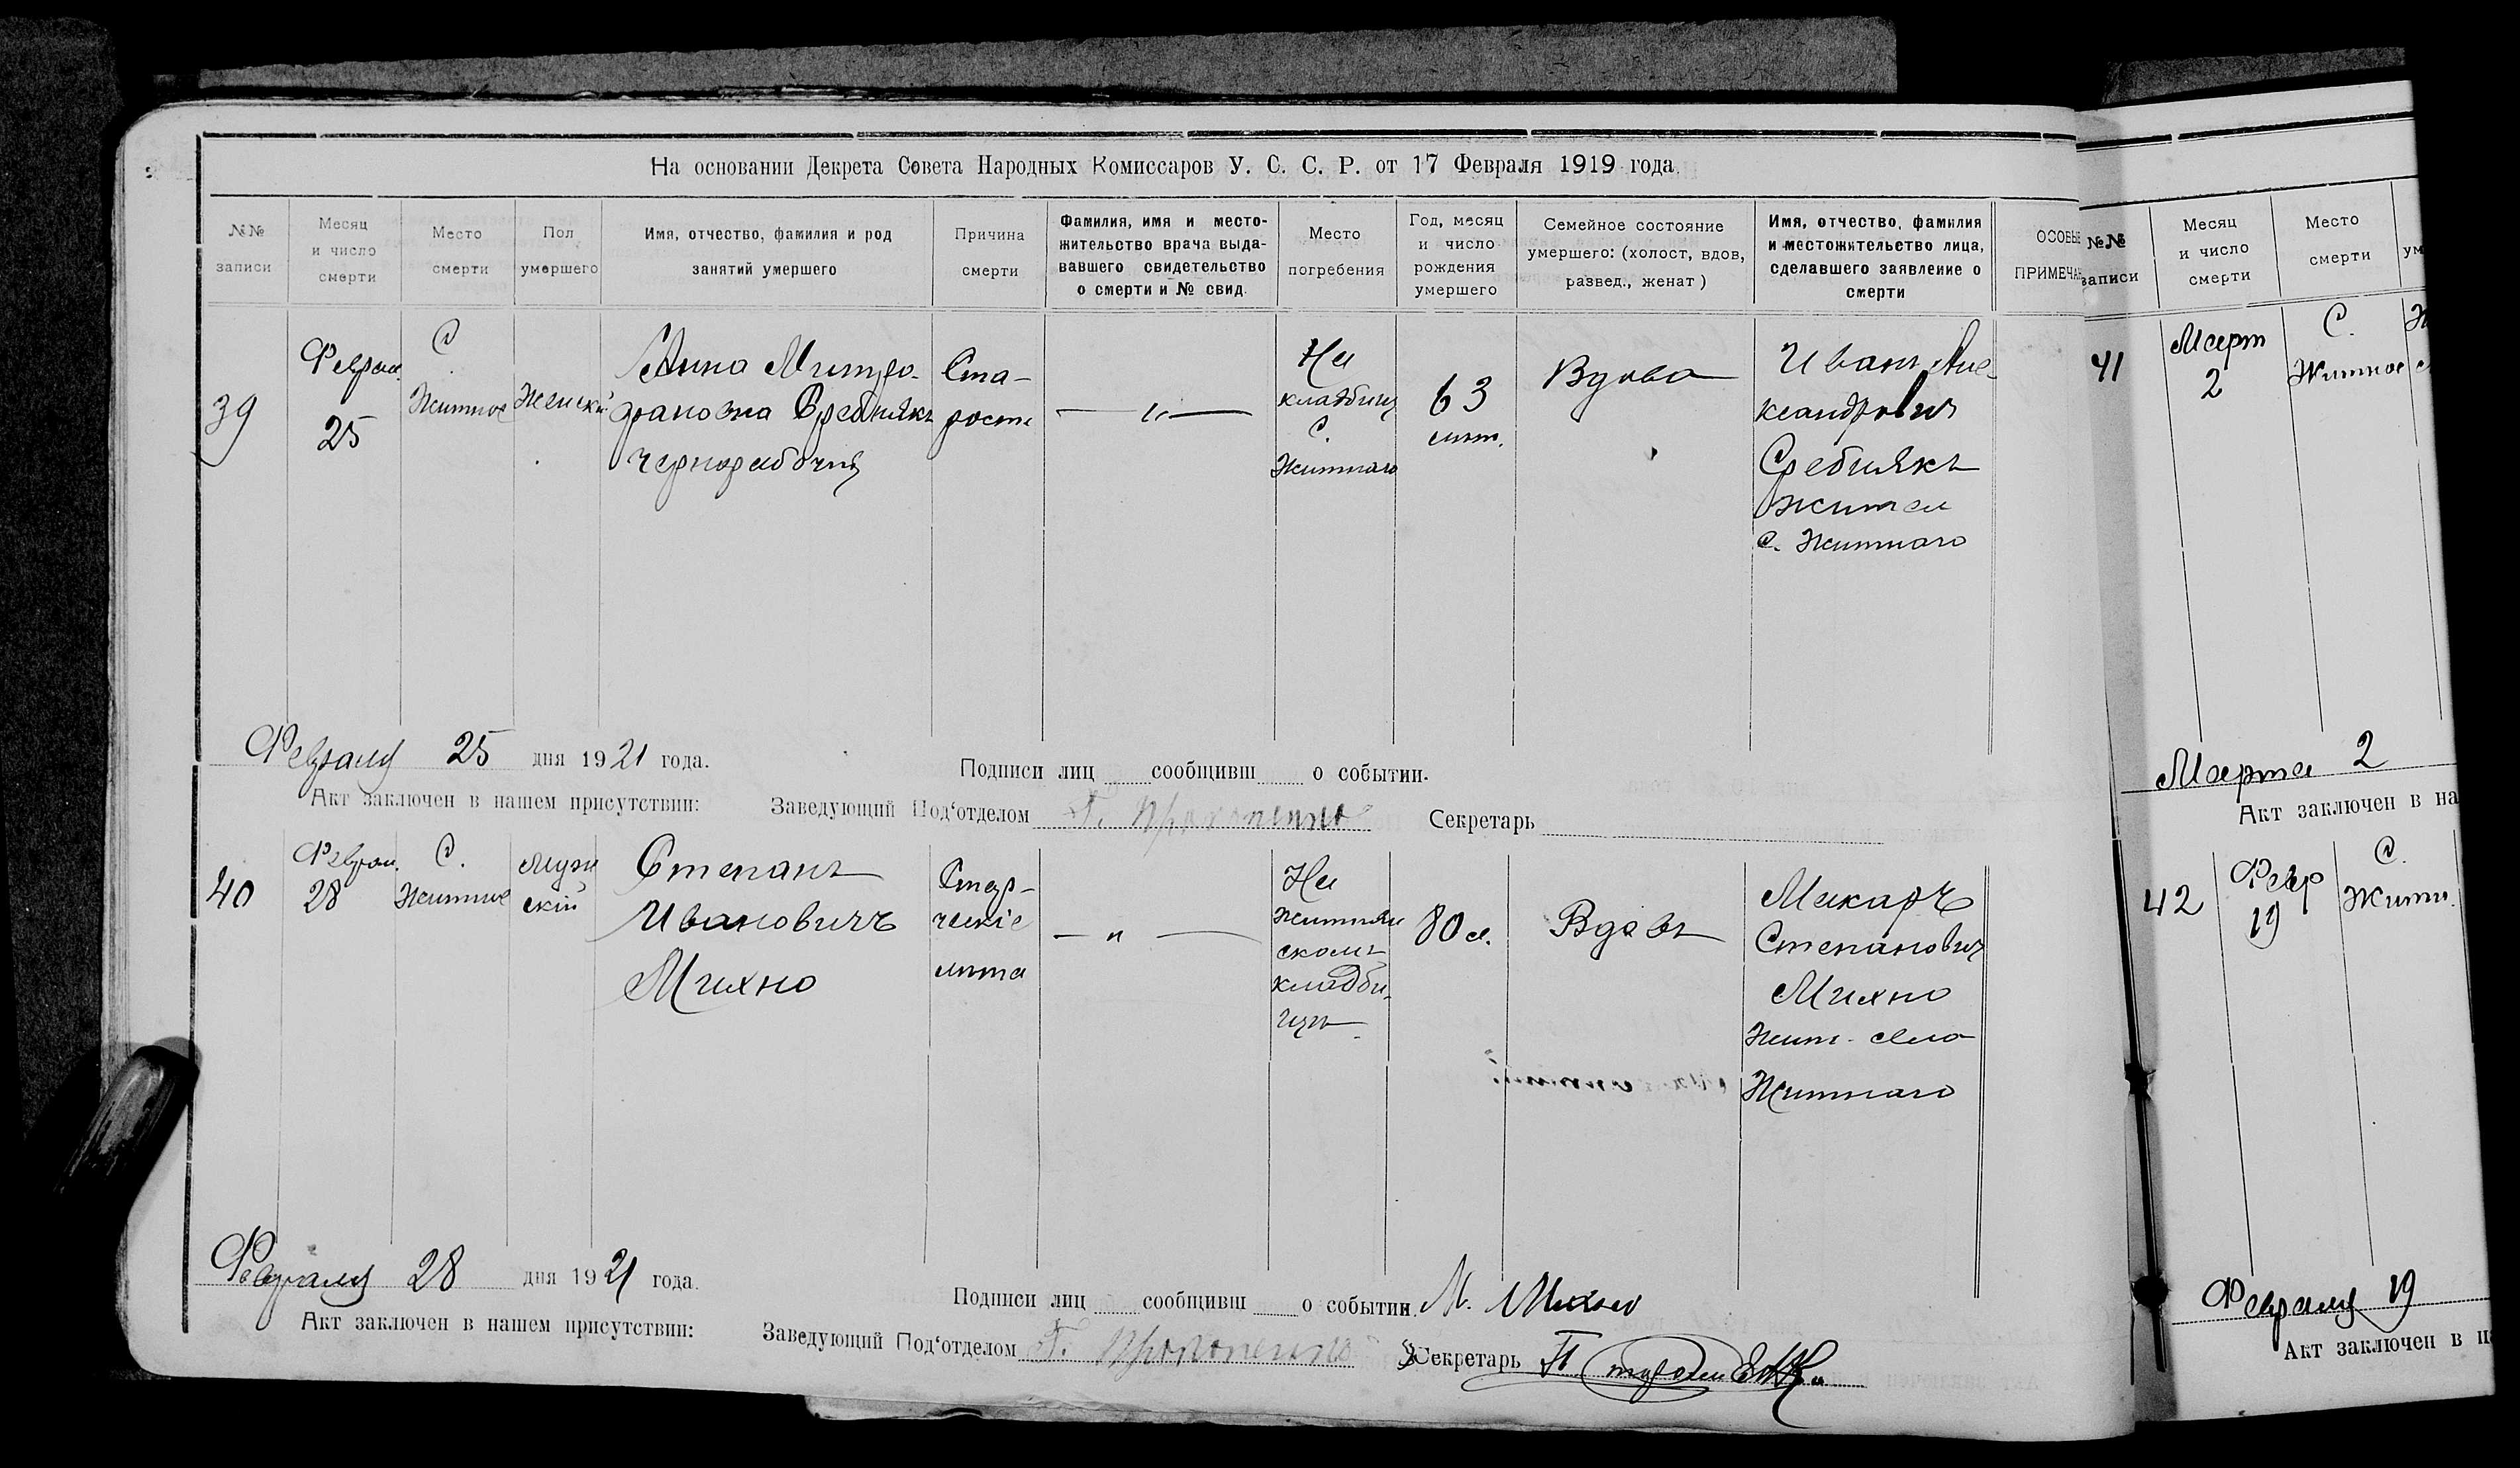 На основании Декрета Совета Народных Комиссаров У. С. С. Р. от 17 Февраля 1919 года.
№№ записи
Месяц и число смерти
Место смерти
Пол умершего
Имя, отчество, фамилия и род занятий умершего
Причина смерти
Фамилия, имя и место-
жительство врача выда-
вавшего свидетельство
о смерти и № свид.
Место погребения
Год, месяц и число рождения умершего
Семейное состояние
умершего: (холост, вдов,
развед., женат)
Имя, отчество, фамилия
и местожительство лица,
сделавшего заявление о
смерти
ОСОБЫЕ
ПРИМЕЧА
39
Феврал.
25
С.
Житное
Женскій
Анна Митро-
фановна Сребнякъ
чернорабочий
Ста-
рость
— „ —
На
кладбищ
С.
Житнаго
63
лѣт.
Вдова
Иванъ Але-
ксандрович
Сребнякъ
жител
С. Житнаго
Февраля 25 дня 1921 года.
Подписи лиц сообщивш о событии.
Акт заключен в нашем присутствии: Заведующий Под'отделом Т. Прокопенко Секретарь
40
Феврал.
28
С.
Житное
Муж
скій
Степанъ
Ивановичъ
Михно
Стар-
ческіе
лѣта
— „ —
На
житнян
скомъ
кладби-
щѣ
80 л.
Вдовъ
Макаръ
Степанович
Михно
Жит. села
Житнаго
Февраля 28 дня 1921 года.
Подписи лиц сообщивш о событии. М. Михно
Акт заключен в нашем присутствии: Заведующий Под'отделом Т. Прокопенко Секретарь
№№ записи
Месяц и число смерти
Место смерти
ум
41
Март
2
С.
Житное
Марта 2
Акт заключен в на
42
Февр
19
С.
Житн.
Февраля 19
Акт заключен в на